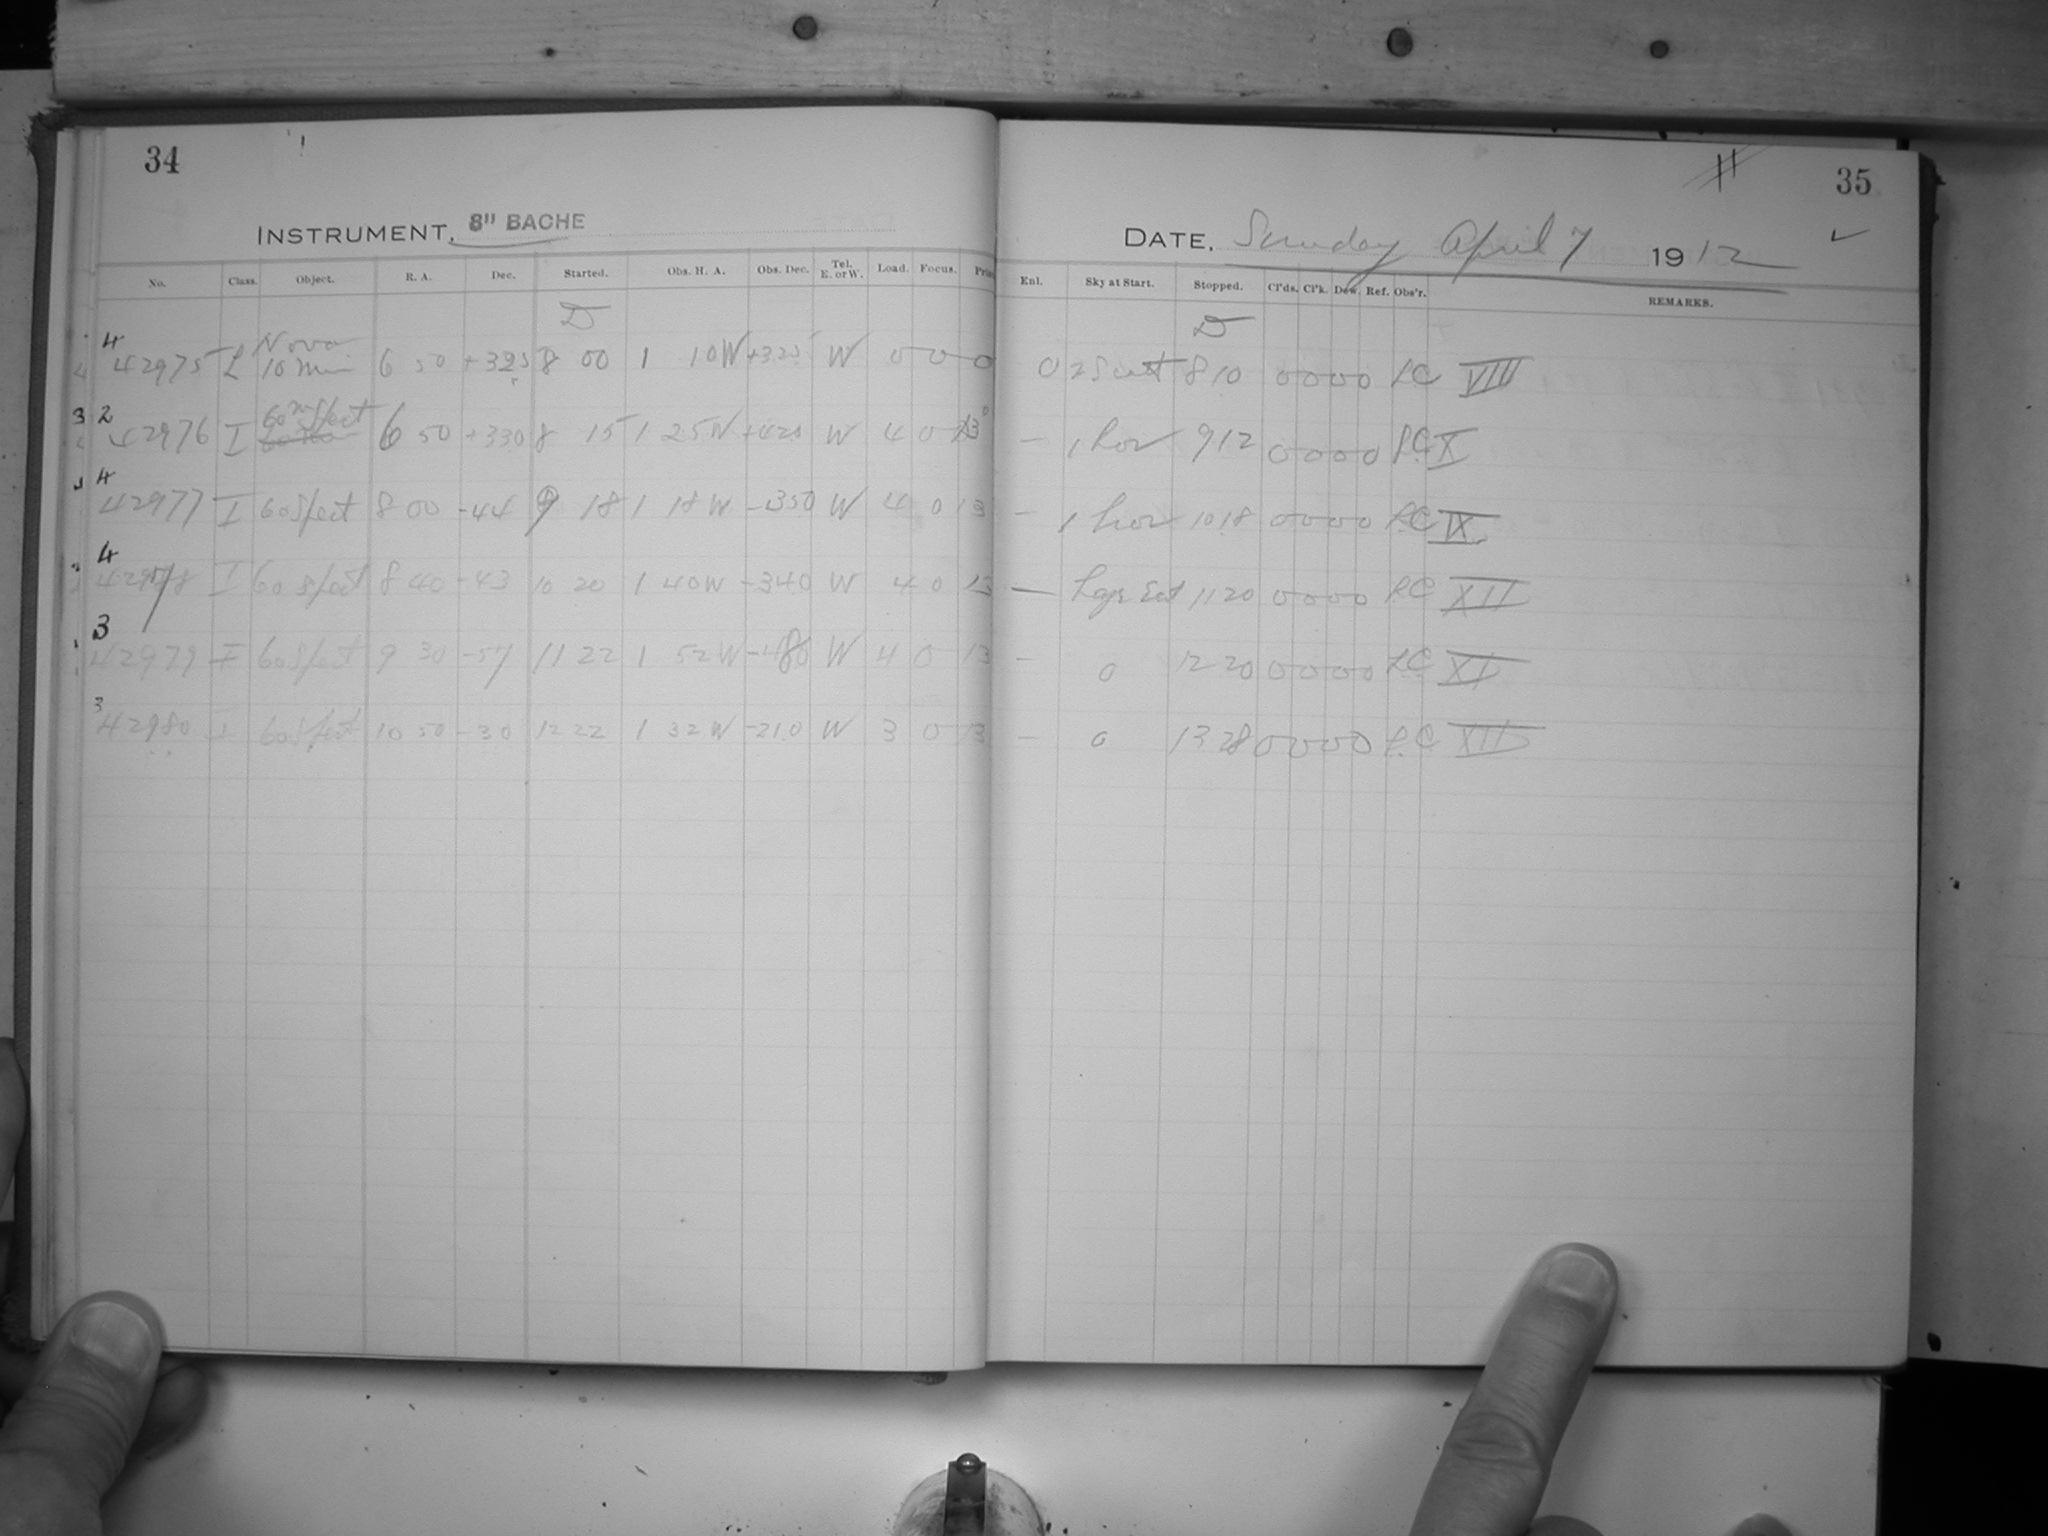 34
INSTRUMENT, 8" BACHE
No. Class. Object. R. A. Dec. Started. Obs. H. A. Obs. Dec. Tel. E. or W. Load. Focus.
D
4
42975 L Nova 10 Min 6 50 +325 8 00 1 10W +325 W 0 0 0
3 2
42976 I 60m Spect 6 50 +330 8 15 1 25W +420 W 4 0 13
4
42977 I 60 Spect 8 00 -44 9 18 1 18 W -350 W 4 0 13
4
42978 I 60 Spect 8 40 -43 10 20 1 40W -340 W 4 0 13
3
42979 I 60 Spect 9 30 -57 11 22 1 52W W 4 0 13
3
42980 I 60 Spect 10 50 -30 12 22 1 32W -210 W 3 0 13
35
DATE, Sunday April 7 1912
Enl. Sky at Start. Stopped. Cl'ds. Cl'k. Dew. Ref. Obs'r. REMARKS.
D
0 8 10 0 0 0 0 LC VIII
— 1 hor 9 12 0 0 0 0 LC X
— 1 hor 10 18 0 0 0 0 LC IX
— 11 20 0 0 0 0 LC XII
— 0 12 20 0 0 0 0 LC XI
— 0 13 28 0 0 0 0 LC XII